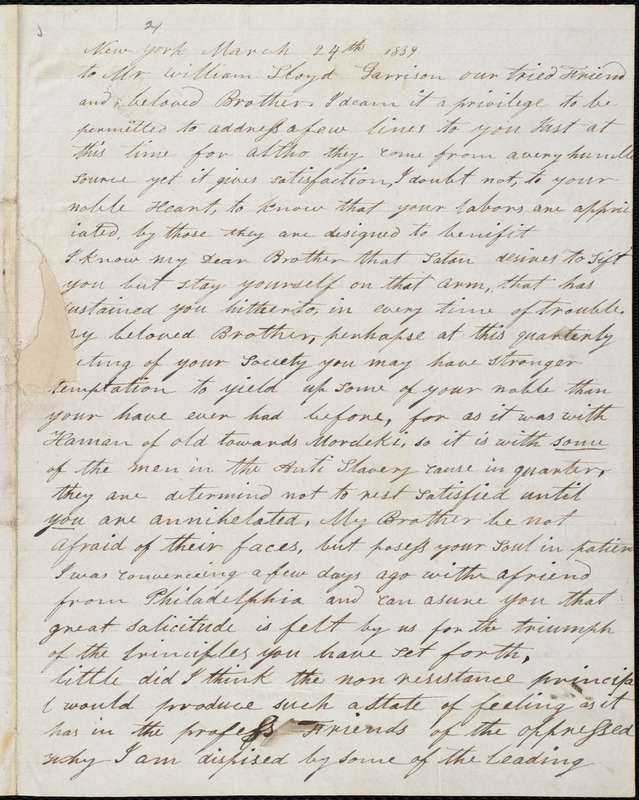 2
New york March 24th 1839
to Mr. William Lloyd Garrison our tried Friend
and beloved Brother. I deam it a privilege to be
permitted to address a few lines to you Just at
this time for altho they come from a very humble
source yet it gives satisfaction, I doubt not, to your
noble Heart, to know that your labors are appric
iated, by those they are designed to benifit
I know my Dear Brother that Satan desires to sift
you but stay yourself on that arm, that has
ustained you hitherto, in every time of trouble.
my beloved Brother, perhapse at this quarterly
eting of your Society you may have stronger
temptation to yield up some of your noble than
your have ever had before, for as it was with
Haman of old towards Mordeki, so it is with some
of the men in the Anti Slavery cause in quarter,
they are determind not to rest satisfied until
you are annihelated. My Brother be not
afraid of their faces, but posess your Soul in patien
I was converceing a few days ago with a friend
from Philadelphia and can asure you that
great salicitude is felt by us for the triumph
of the principles you have set forth,
little did I think the non resistance principa
l would produce such a state of feeling as it
has in the profess Friends of the oppressed
why I am dispised by some of the leading